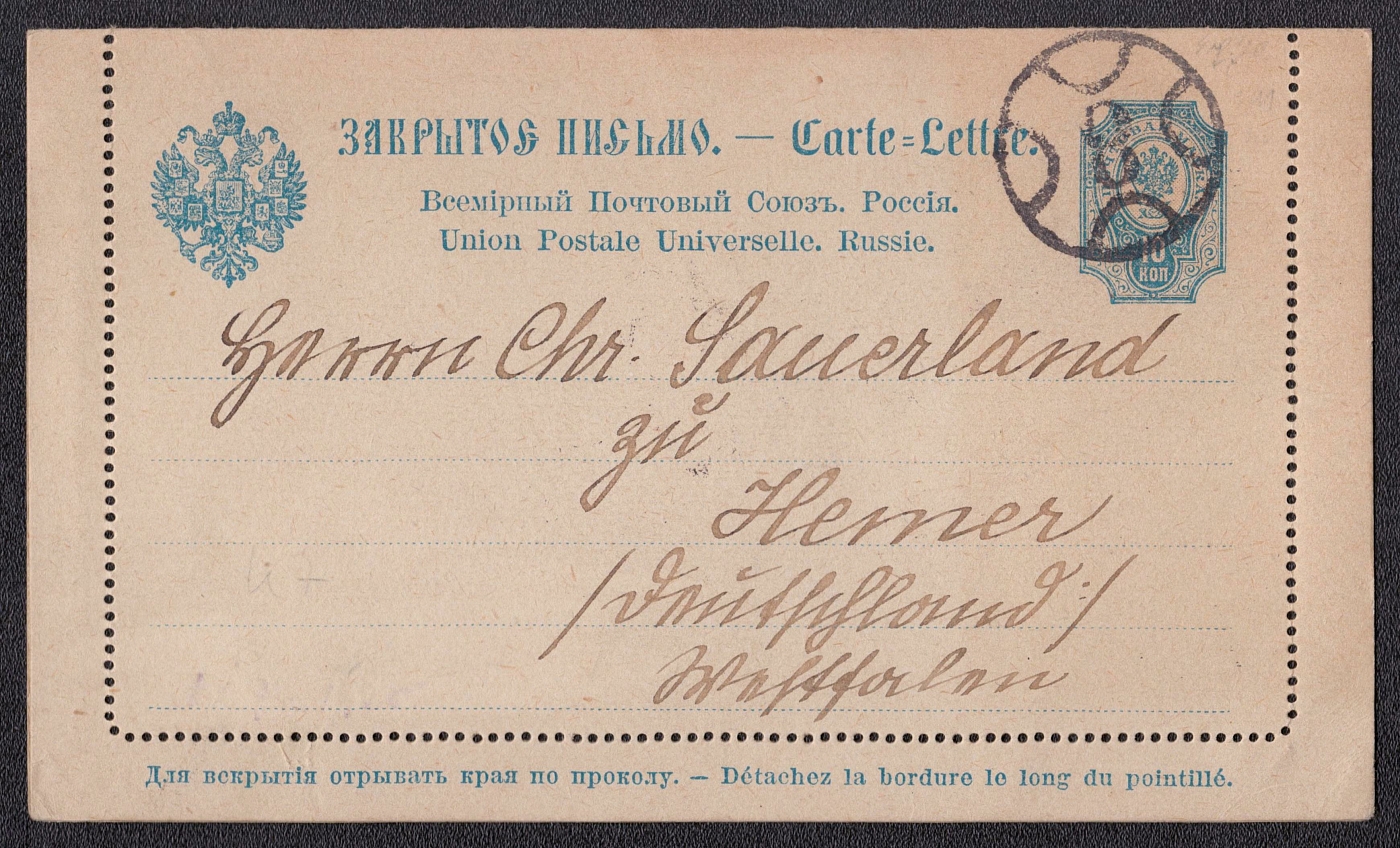 ЗАКРЫТОЕ ПИСЬМО. — Carte=Lettre.
Всемірный Почтовый Союзъ. Россія.
Union Postale Universelle. Russie.
10
КОП
Herrn Chr. Sauerland
zu
Hemer
/Deutschland:/
Westfalen
Для вскрытія отрывать края по проколу. — Détachez la bordure le long du pointillé.